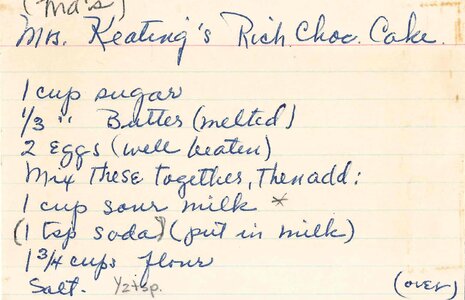 (Ma's)
Mrs. Keating's Rich Choc. Cake.
1 cup sugar
1/3 " Butter (melted)
2 Eggs (well beaten)
Mix these together, then add:
1 cup sour milk *
(1 tsp soda) (put in milk)
1 3/4 cups flour
Salt. 1/2 tsp.
(over)